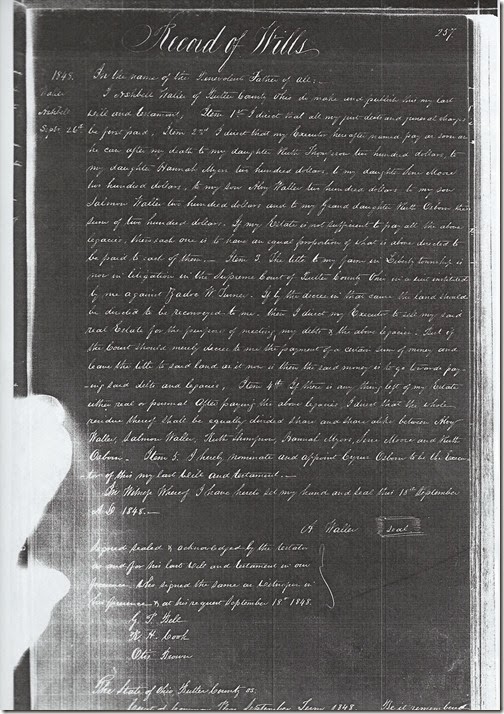 Record of Wills
257
1848.
Sept 26th
In the name of the Benevolent Father of all:-
I Ashbell Waller of Butler County Ohio do make and publish this my last
will and testament, Item 1st I direct that all my just debts and general charges
be first paid; Item 2nd I direct that my Executor hereafter named pay as soon as
he can after my death to my daughter Ruth Thompson two hundred dollars, to
my daughter Hannah Myers two hundred dollars, to my daughter Jane Moore
two hundred dollars, to my son Alvy Waller two hundred dollars to my son
Salmon Waller two hundred dollars and to my Grand daughter Ruth Osborn the
sum of two hundred dollars. If my Estate is not sufficient to pay all the above
legacies, then each one is to have an equal proportion of what is above directed to
be paid to each of them. — Item 3. The title to my farm in Liberty township is
now in litigation in the Supreme Court of Butler County Ohio in a suit instituted
by me against W Turner. If by the decree in that cause the land should
be directed to be reconveyed to me, then I direct my Executor to sell my said
real Estate for the purpose of meeting my debts & the above legacies. But if
the Court should merely decree to me the payment of a certain sum of money and
leave the title to said land as it now is then the said money is to go towards pay-
ing said debts and legacies, Item 4th If there is any thing left of my Estate
either real or personal After paying the above legacies I direct that the whole
residue thereof shall be equally divided share and share alike between Alvy
Waller, Salmon Waller, Ruth Thompson, Hannah Myers, Jane Moore and Ruth
Osborn. — Item 5. I hereby nominate and appoint Cyrus Osborn to be the Execu-
tor of this my last Will and testament. —
In Witness Whereof I have hereto set my hand and seal this 18th September
A.D. 1848. —
A Waller seal
Signed sealed & acknowledged by the testator
as and for his last will and testament in our
presence who signed the same as witnesses in
his presence & at his request September 18th 1848.
K. H. Cook
Otis Brown
The State of Ohio Butler County ss.
September Term 1848 Be it remembered